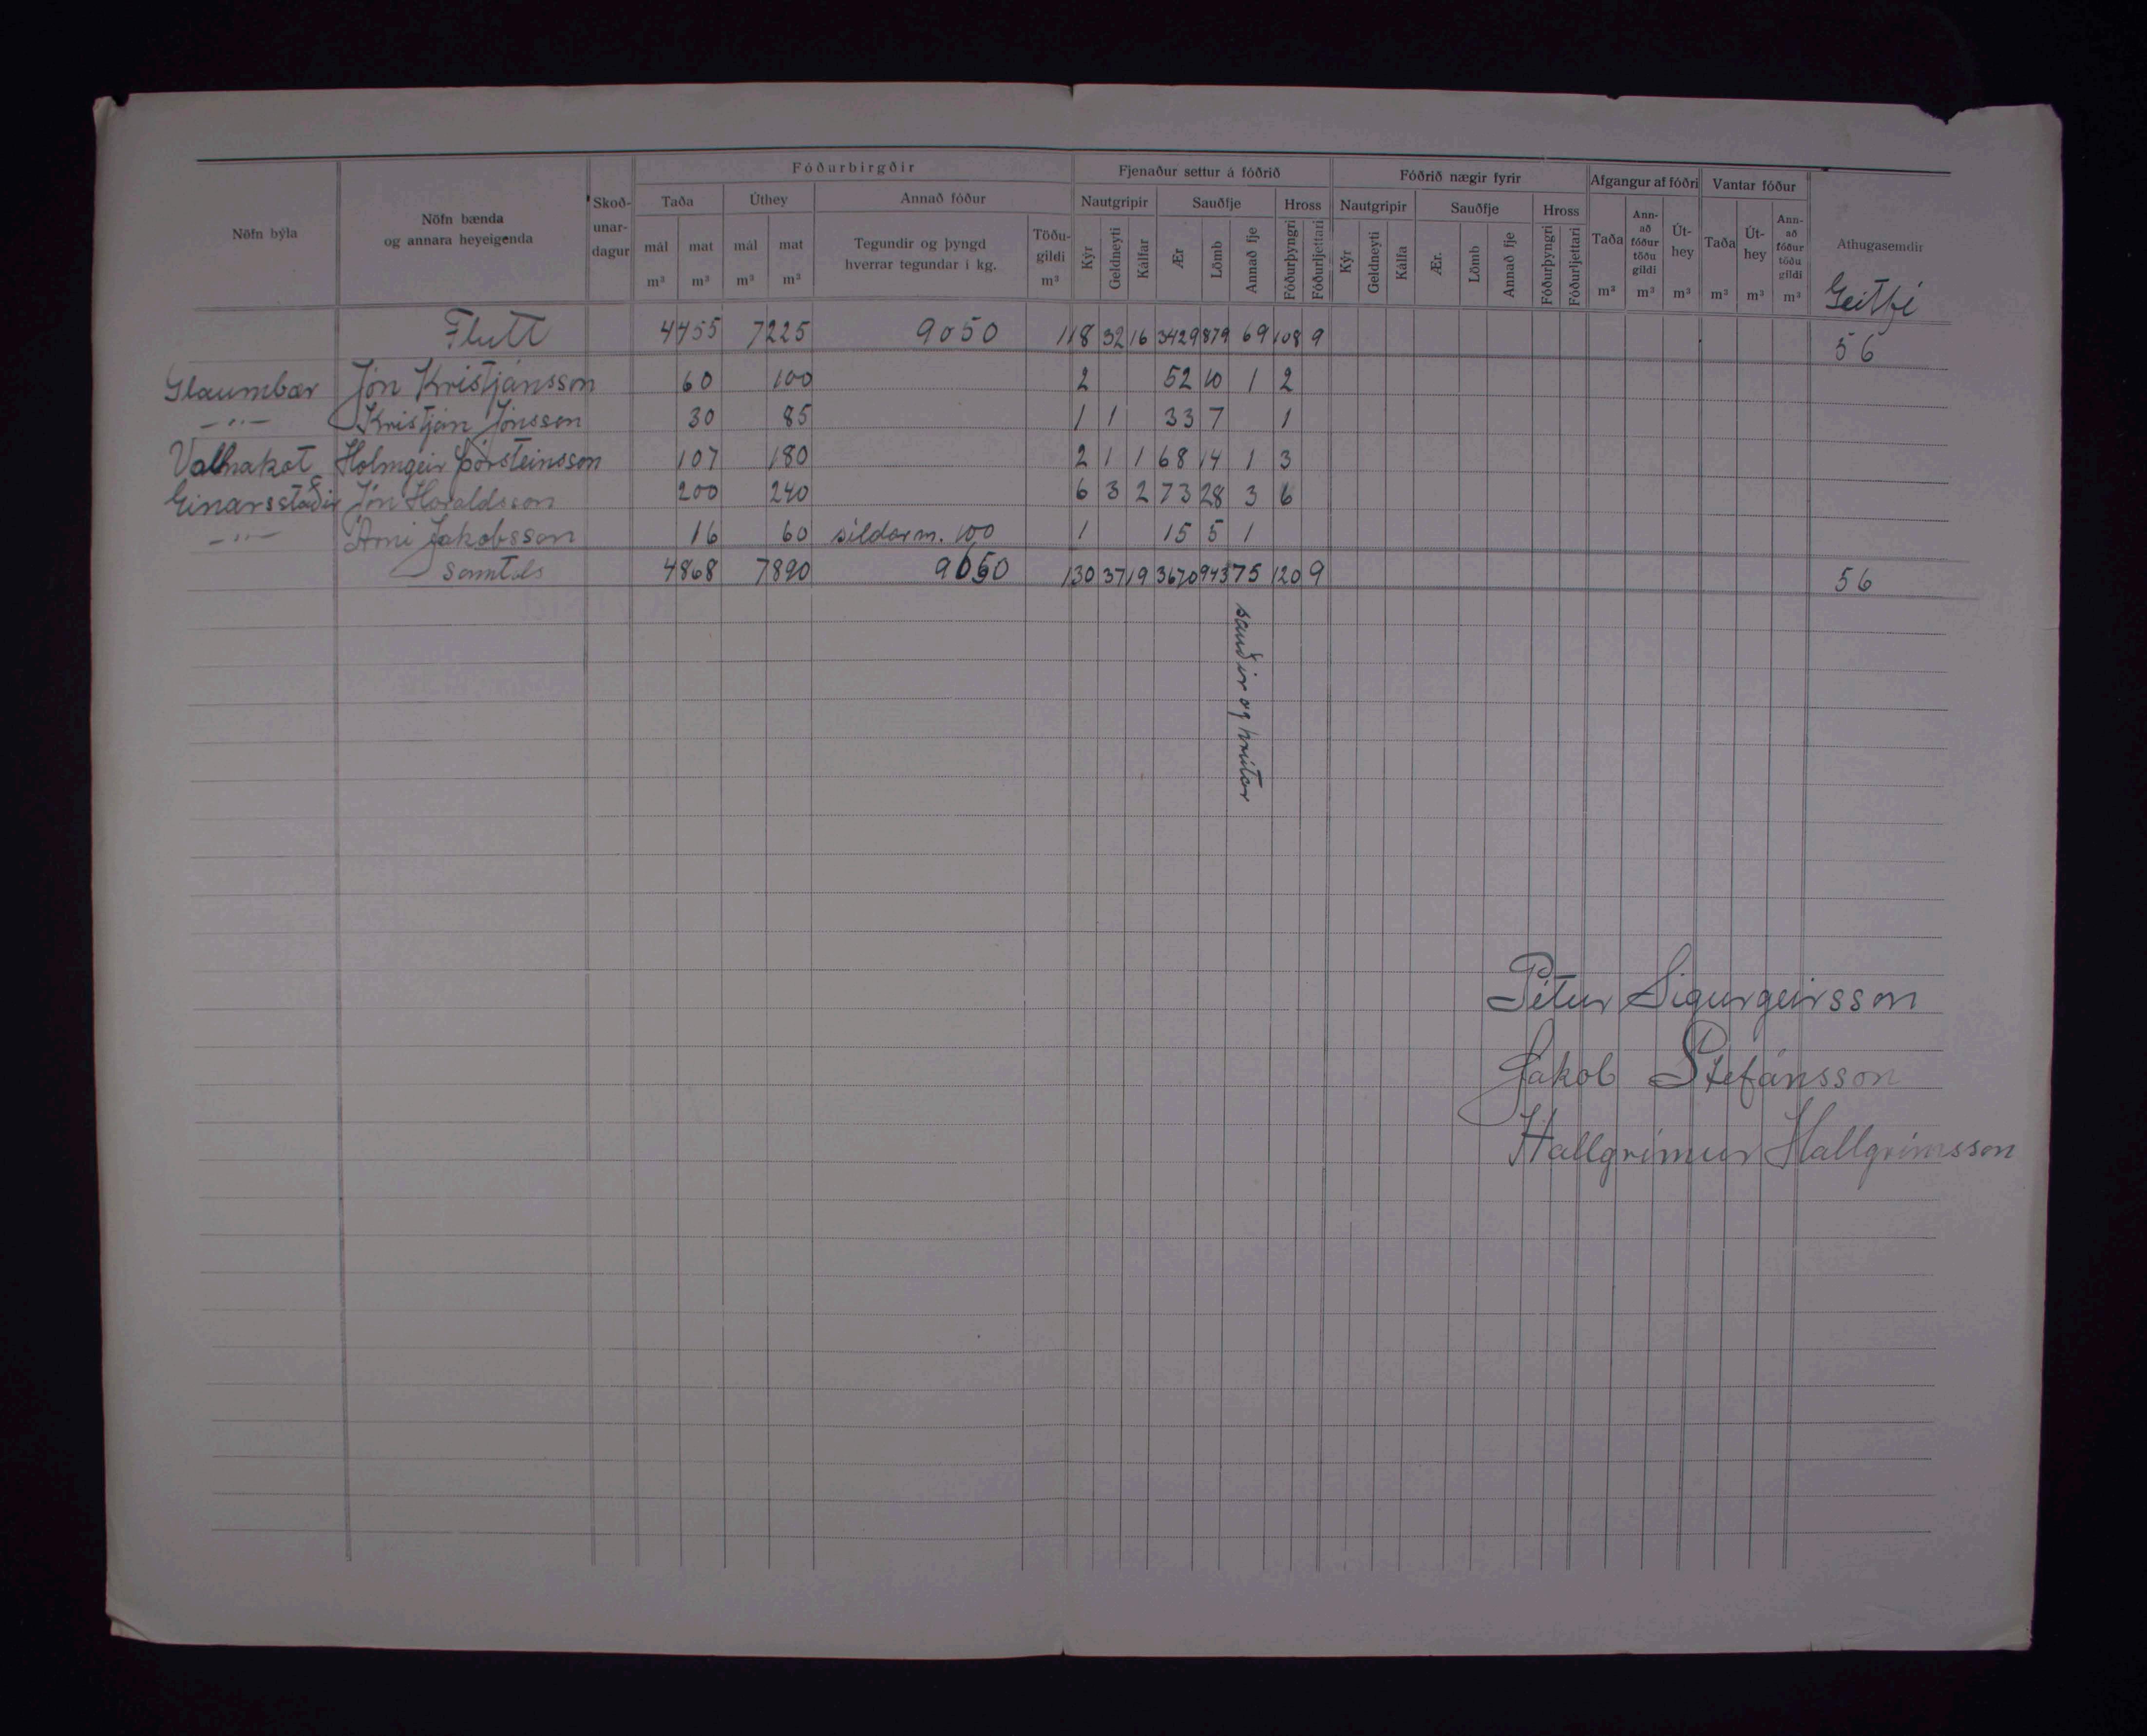 Fóðurbirgðir Fjenaður settur á fóðrið Fóðrið nægir fyrir Afgangur af fóðri Vantar fóður
Nöfn býla Nöfn bænda og annara heyeigenda Skoð-unar-dagur Taða Úthey Annað fóður Nautgripir Sauðfje Hross Nautgripir Sauðfje Hross Taða Ann-að fóður töðu gildi Út-hey Taða Út-hey Ann-að fóður töðu gildi Athugasemdir
mál m³ mat m³ mál m³ mat m³ Tegundir og þyngd hverrar tegundar í kg. Töðu-gildi m³ Kýr Geldneyti Kálfar Ær Lömb Annað fje Fóðurþyngri Fóðurljettari Kýr Geldneyti Kálfa Ær. Lömb Annað fje Fóðurþyngri Fóðurljettari m³ m³ m³ m³ m³ m³ Geitfé
Flutt 4455 7225 9050 118 32 16 3429 879 69 108 9 56
Glaumbær Jón Kristjánsson 60 100 2 52 10 1 2
–"– Kristján Jónsson 30 85 1 1 33 7 1
Vallnakot Holmgeir Þorsteinsson 107 180 2 1 1 68 14 1 3
Einarsstaðir Jón Haraldsson 200 240 6 3 2 73 28 3 6
–"– Árni Jakobsson 16 60 síldarm. 100 1 15 5 1
Samtals 4868 7890 130 37 19 3670 943 75 120 9 56
sauðir og hrútar
Pétur Sigurgeirsson
Jakob Stefánsson
Hallgrímur Hallgrímsson